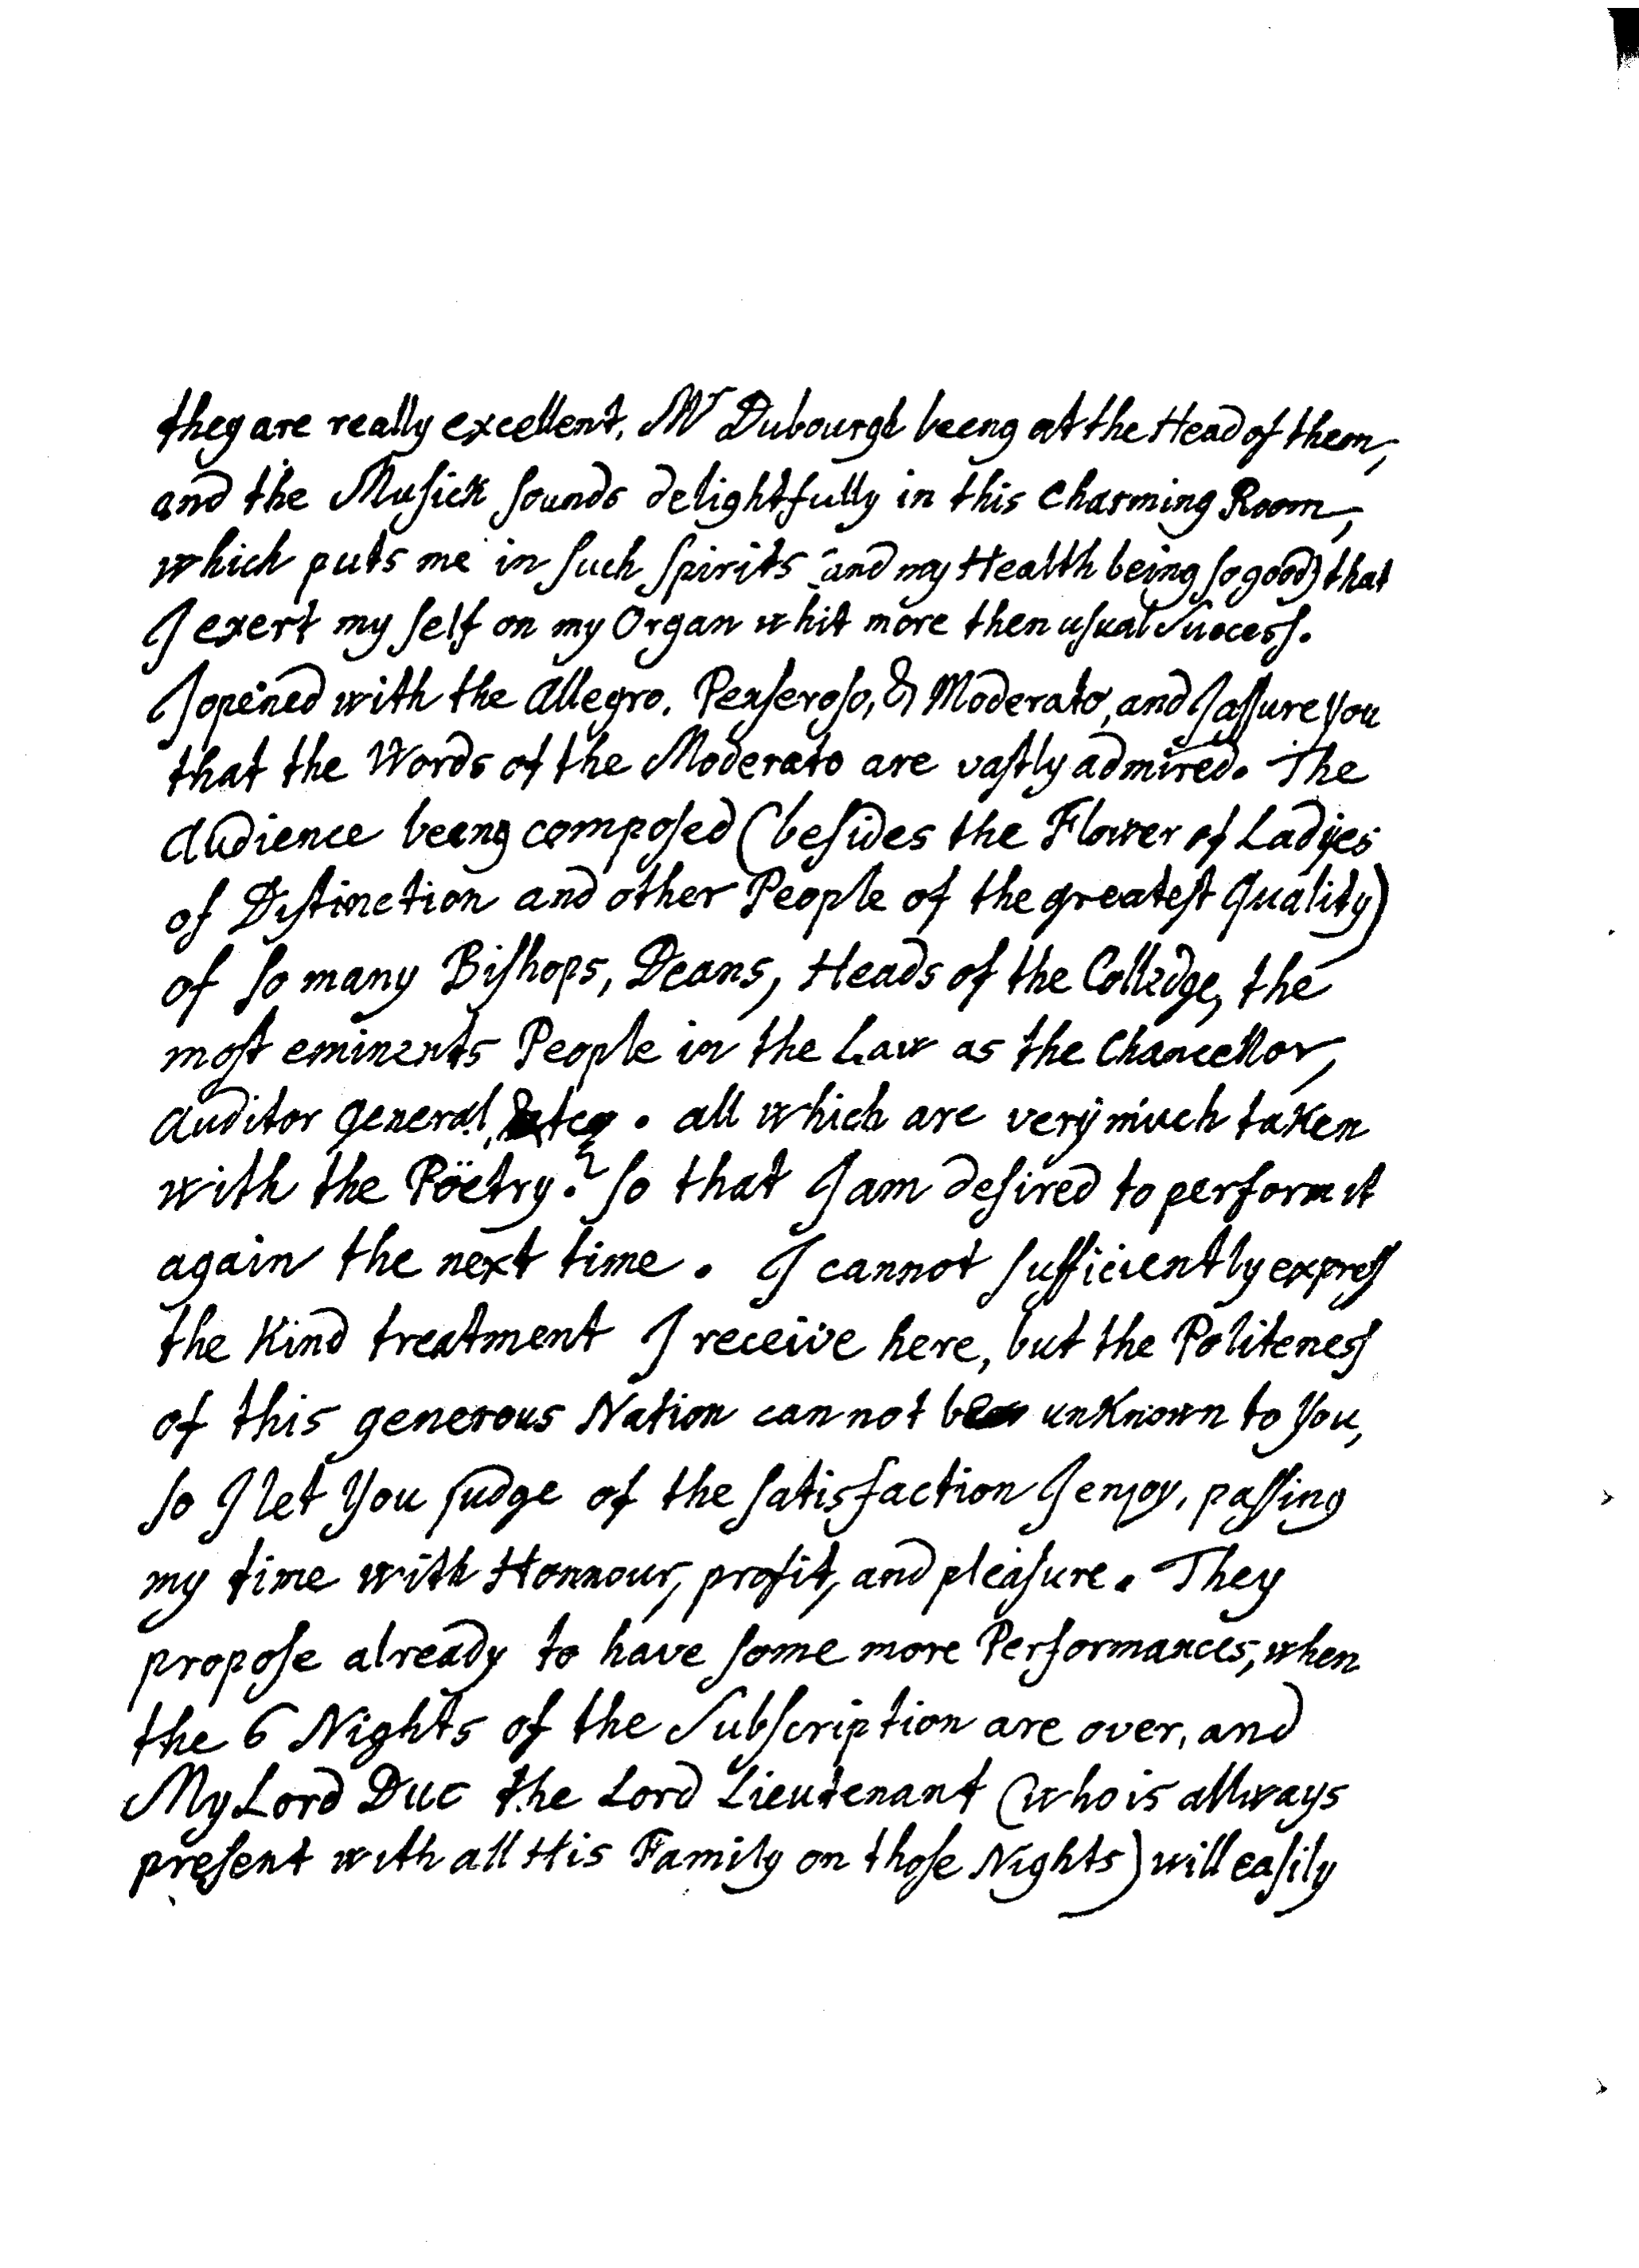 they are really excellent, Mr Dubourgh beeng at the Head of them,
and the Musick sounds delightfully in this charming Room,
which puts me in such Spirits (and my Health being so good) that
I exert my self on my Organ whit more then usual Success.
I opened with the Allegro, Penseroso, & Moderato, and I assure you
that the Words of the Moderato are vastly admired. The
Audience beeng composed (besides the Flower of Ladyes
of Distinction and other People of the greatest Quality)
of so many Bishops, Deans, Heads of the Colledge, the
most eminents People in the Law as the Chancellor,
Auditor General, &tc. all which are very much taken
with the Poëtry. So that I am desired to perform it
again the next time. I cannot sufficiently express
the Kind treatment I receive here, but the Politeness
of this generous Nation cannot be unknown to You,
so I let You judge of the satisfaction I enjoy, passing
my time with Honnour, profit, and pleasure. They
propose already to have some more Performances, when
the 6 Nights of the Subscription are over, and
My Lord Duc the Lord Lieutenant (who is allways
present with all His Family on those Nights) will easily